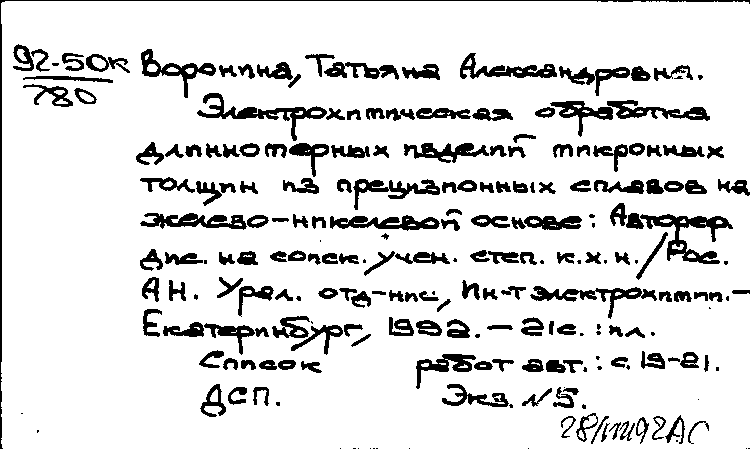 92-50к Воронина, Татьяна Александровна.
780
Электрохимическая обработка
длинномерных изделий микронных
толщин из прецизионных сплавов на
железо-никелевой основе: Автореф.
дис. на соиск. учен. степ. к.х.н. / Рос.
АН. Урал. отд-ние, Ин-т электрохимии. -
Екатеринбург, 1992. - 21с. : ил.
Список работ авт.: с. 19-21.
ДСП. Экз. N 5.